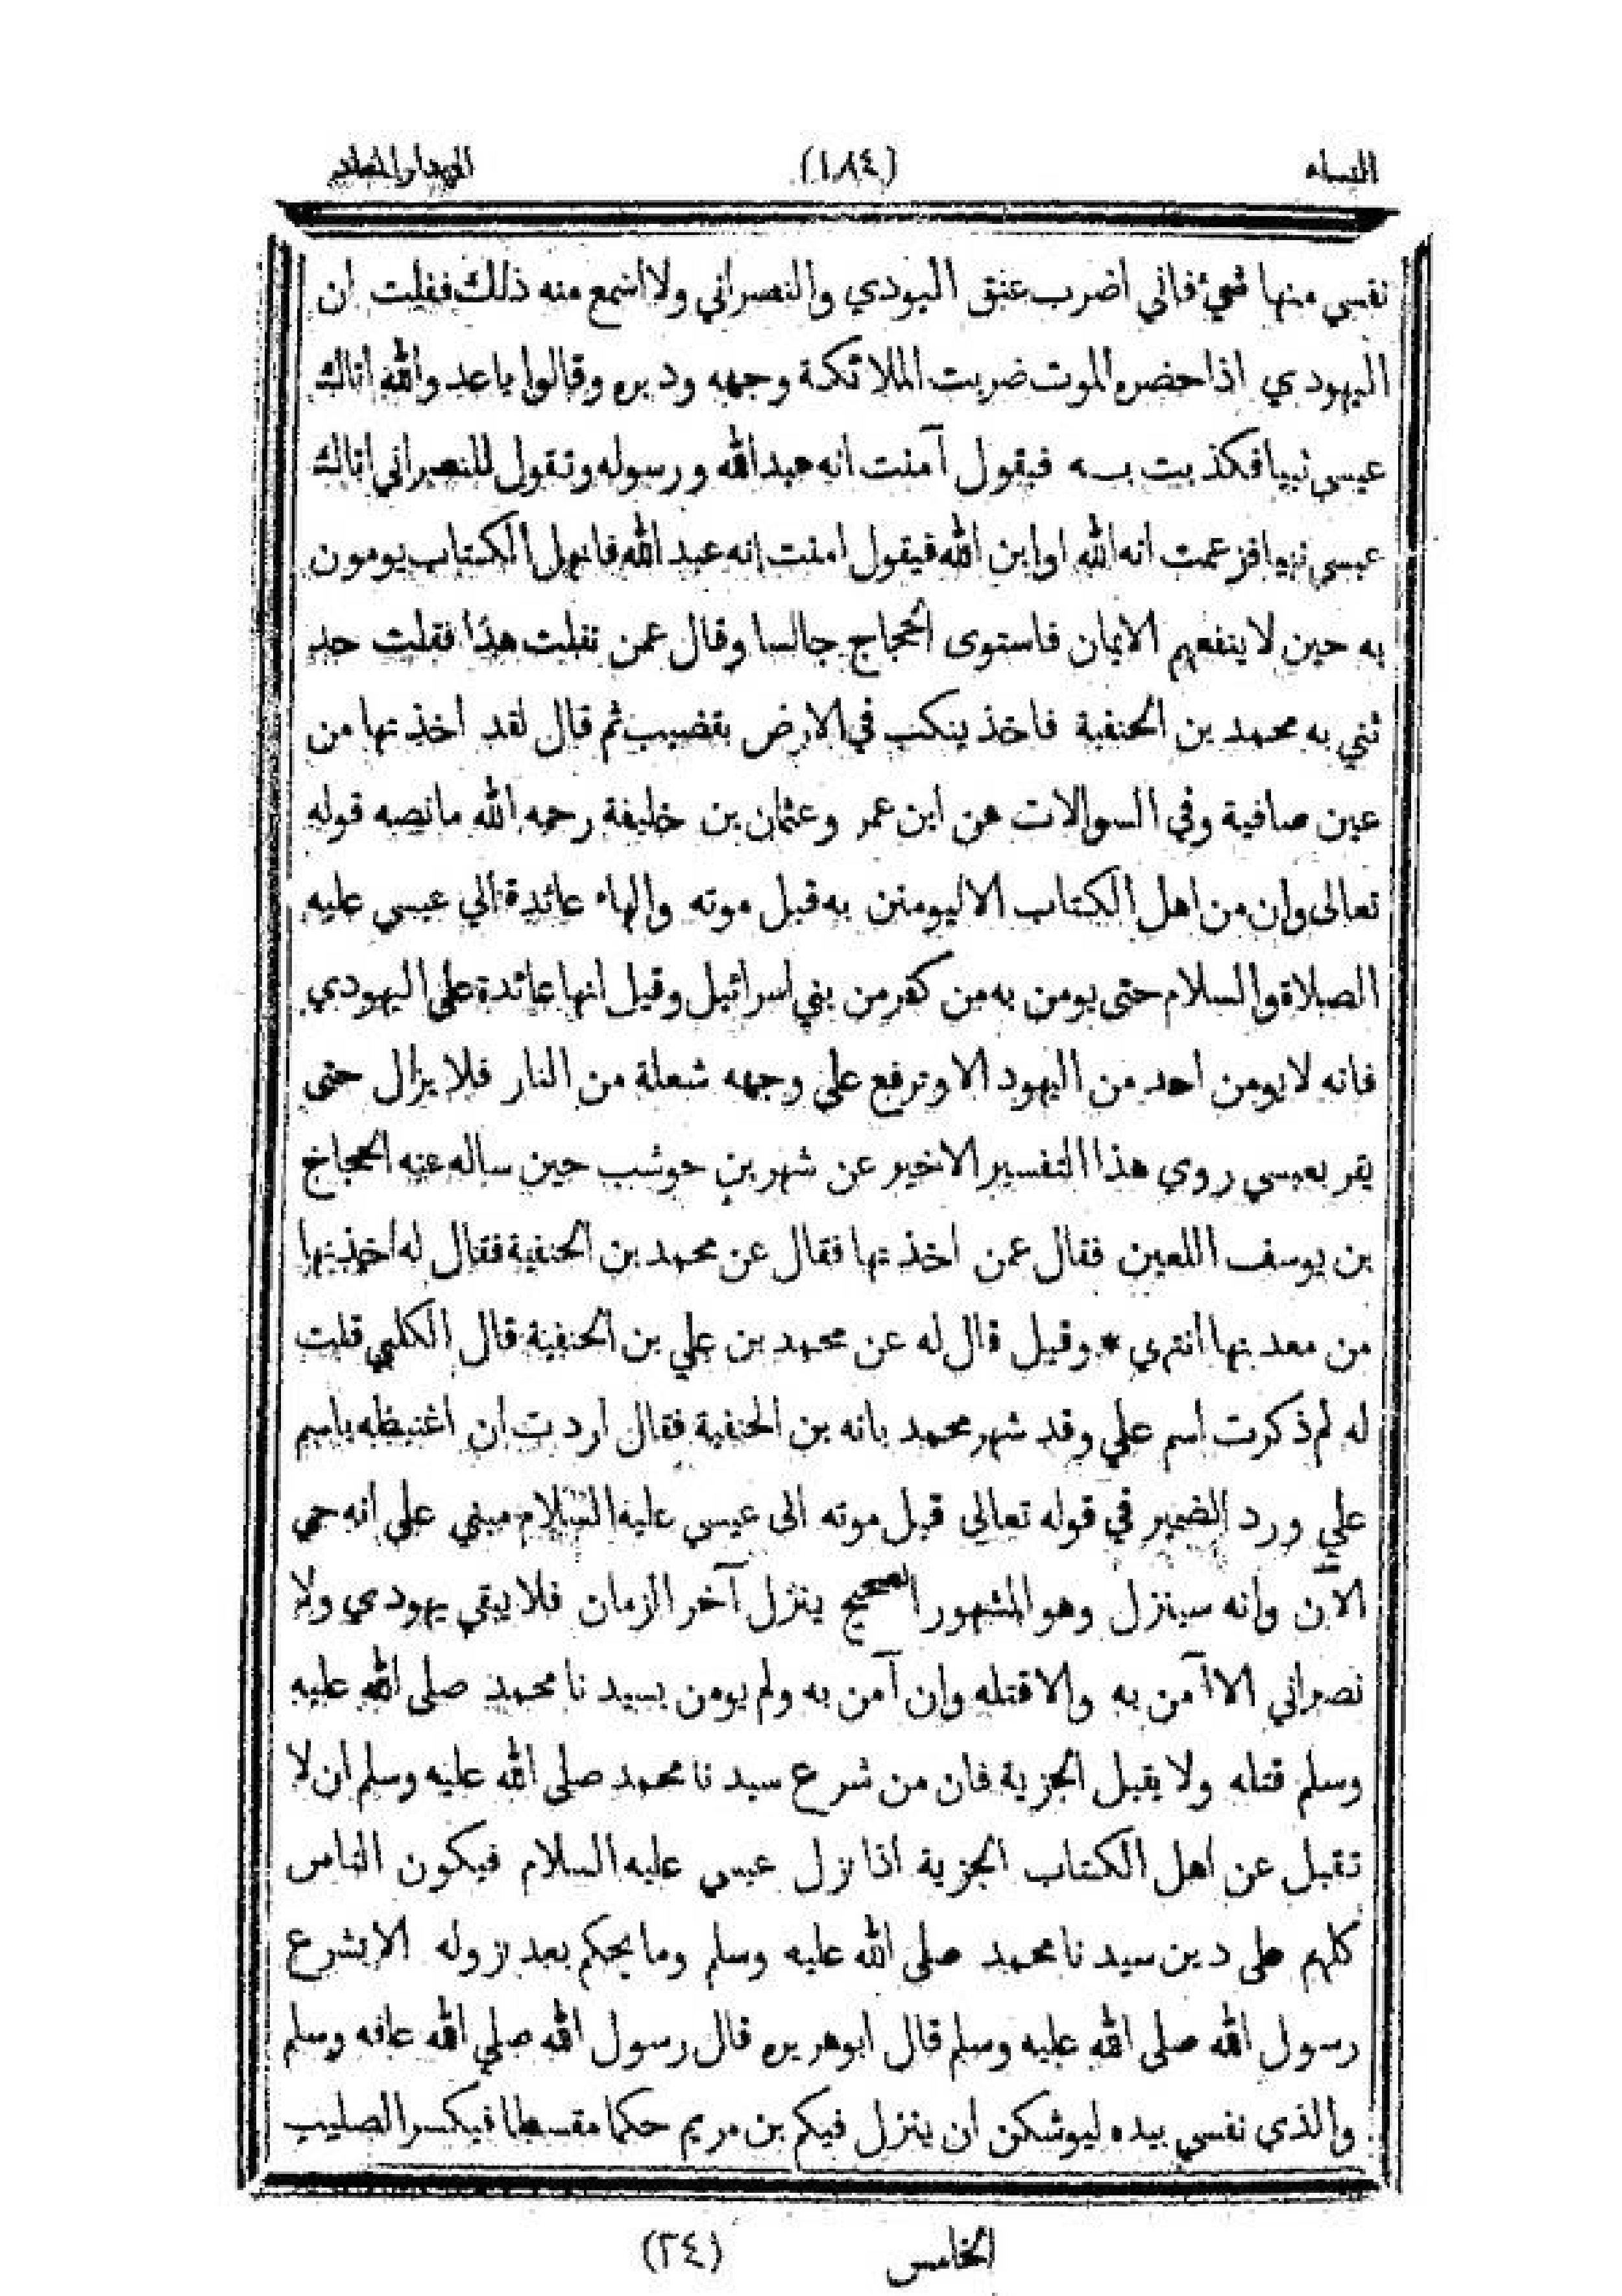 النساء (١٨٤)
نفسي منها شيء فاني اضرب عنق اليودي والنصراني ولا اسمع منه ذلك فقلت ان
اليهودي اذا حضره الموت ضربت الملائكة وجهه ودبره وقالوا ياعد والله اتاك
عيسى نبيا فكذبت به فيقول آمنت انه عبد الله ورسوله وتقول للنصراني اتاك
عيسى نبيا فزعمت انه الله او ابن الله فيقول امنت انه عبد الله فاهل الكتاب يومون
به حين لا ينفعهم الايمان فاستوى الحجاج جالسا وقال عمن نقلت هذا فقلت حد
ثني به محمد بن الحنفية فاخذ ينكت في الارض بقضيب ثم قال لقد اخذتها من
عين صافية وفي السوالات عن ابن عمر وعثمان بن خليفة رحمه الله مانصه قوله
تعالى وان من اهل الكتاب الا ليومنن به قبل موته والهاء عائدة الي عيسى عليه
الصلاة والسلام حتى يومن به من كفر من بني اسرائيل وقيل انها عائدة على اليهودي
فانه لا يومن احد من اليهود الا وترفع على وجهه شعلة من النار فلا يزال حتى
يقر بعيسى روي هذا التفسير الاخير عن شهر بن حوشب حين ساله عنه الحجاج
بن يوسف اللعين فقال عمن اخذتها فقال عن محمد بن الحنفية فقال له اخذتها
من معدنها انتهي * وقيل قال له عن محمد بن علي بن الحنفية قال الكلبي قلت
له لم ذكرت اسم علي وقد شهر محمد بانه بن الحنفية فقال اردت ان اغيظه باسم
علي ورد الضمير في قوله تعالى قبل موته الى عيسى عليه السلام مبني على انه حي
الآن وانه سينزل وهو المشهور الصحيح ينزل آخر الزمان فلا يبقى يهودي ولا
نصراني الا آمن به والا قتله وان آمن به ولم يومن بسيد نا محمد صلى الله عليه
وسلم قتله ولا يقبل الجزية فان من شرع سيد نا محمد صلى الله عليه وسلم ان لا
تقبل عن اهل الكتاب الجزية اذا نزل عيسى عليه السلام فيكون الناس
كلهم على دين سيد نا محمد صلى الله عليه وسلم وما يحكم بعد نزوله الا بشرع
رسول الله صلى الله عليه وسلم قال ابوهريره قال رسول الله صلى الله عليه وسلم
والذي نفسي بيده ليوشكن ان ينزل فيكم بن مريم حكما مقسطا فيكسر الصليب
الخامس (٢٤)